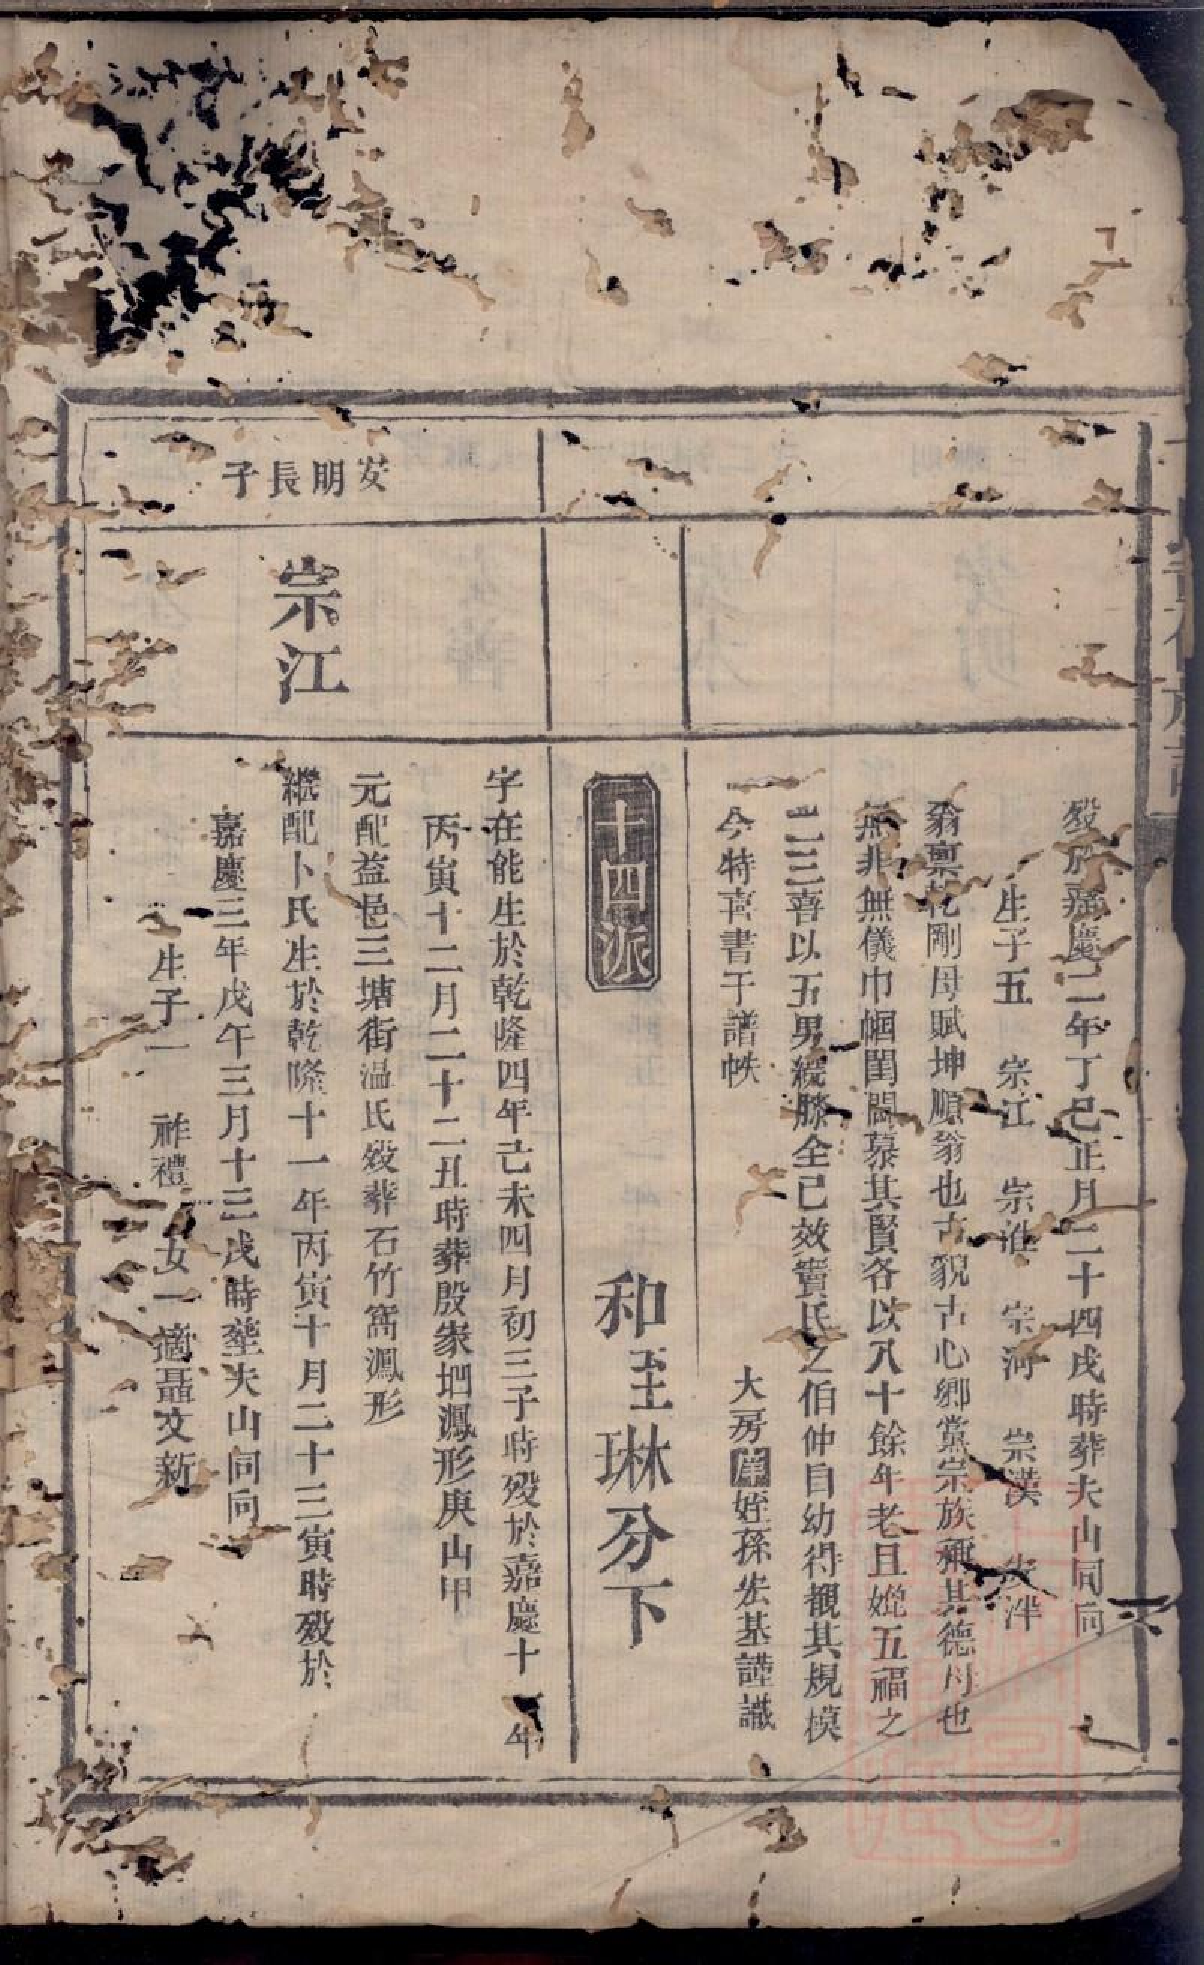 歿於嘉慶二年丁巳正月二十四戌時葬夫山同向
生子五 宗江 宗淮 宗河 宗漢 宗泮
翁禀乾剛母賦坤順翁也古貌古心鄉黨宗族稱其德母也
無非無儀巾幗閨閫慕其賢各以八十餘年老且娩五福之
二三喜以五男繞膝全已效竇氏之伯仲自幼得覩其規模
今特書于譜帙
大房姪孫宏基謹識
十四派
和至琳分下
安明長子
宗江
字在能生於乾隆四年己未四月初三子時歿於嘉慶十 年
丙寅十二月二十二丑時葬殷家坦鳳形庚山甲
元配益邑三塘街溫氏歿葬石竹窩鳳形
繼配卜氏生於乾隆十一年丙寅十月二十三寅時歿於
嘉慶三年戊午三月十三戌時塟夫山同向
生子一 祚禮 女一適聶文新